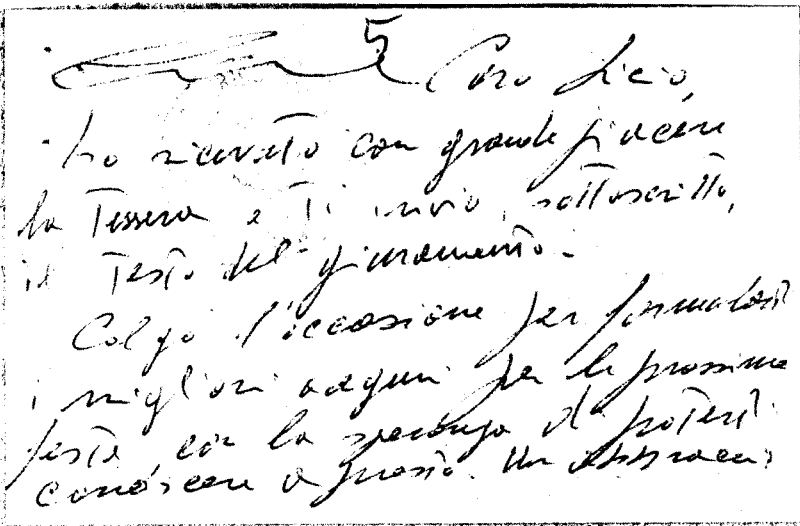 5
Caro Licio,
ho ricevuto con grande piacere
la Tessera e Ti invio, sottoscritto,
il Testo del giuramento.
Colgo l'occasione per formularti
i migliori auguri per le prossime
feste, con la speranza di poterti
conoscere a presto. Un abbraccio